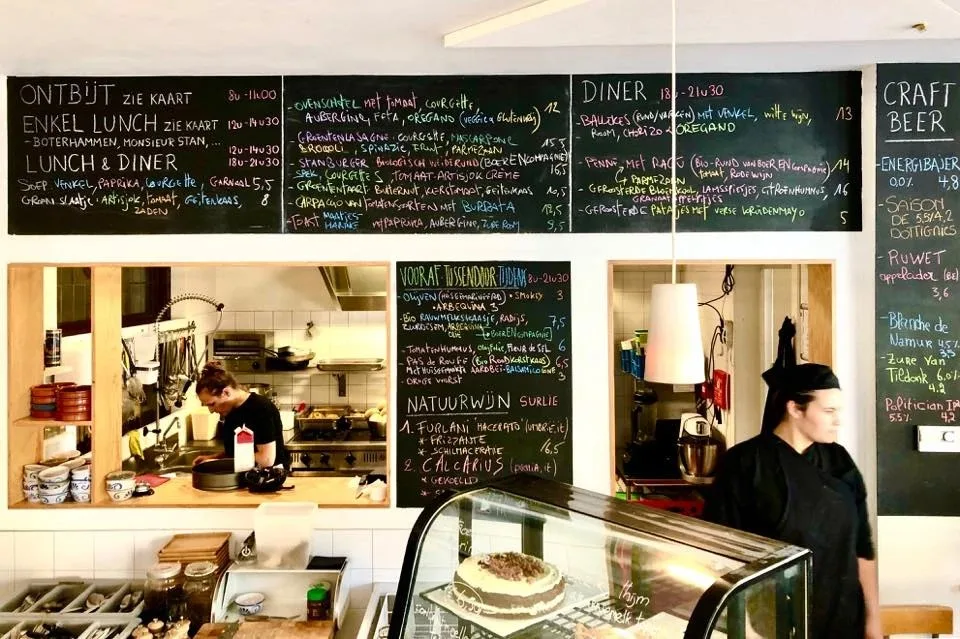 ONTBIJT ZIE KAART 8U-11U00
ENKEL LUNCH ZIE KAART 12U-14U30
- BOTERHAMMEN, MONSIEUR STAN,...
LUNCH & DINER 12U-14U30
18U-21U30
SOEP: VENKEL, PAPRIKA, COURGETTE, GARNAAL 5,5
ARTISJOK, TOMAAT, GEITENKAAS, 8
ZADEN
- OVENSCHOTEL MET TOMAAT, COURGETTE, 12
AUBERGINE, FETA, OREGANO (VEGGIE & GLUTENVRIJ)
- GROENTENLASAGNE: COURGETTE, MASCARPONE 15,5
BROCCOLI, SPINAZIE, PARMEZAAN
- STANBURGER BIOLOGISCH WEIDERUND (BOER EN COMPAGNIE)
SPEK, COURGETTES, TOMAAT-ARTISJOK CREME 16,5
- GROENTENTAART BUTTERNUT, KERSTOMAAT, GEITENKAAS 10,5
- CARPACCIO VAN TOMATENSOORTEN MET BURRATA
- TOAST MAATJES-
HARING PAPRIKA, AUBERGINE, ZURE ROOM 9,5
DINER 18U-21U30
- BALLEKES (RUND/VARKEN) MET VENKEL, WITTE WIJN, 13
ROOM, CHORIZO & OREGANO
- PENNE MET RAGÚ (BIO-RUND VAN BOER EN COMPAGNIE) 14
TOMAAT, RODE WIJN
& PARMEZAAN
- GEROOSTERDE BLOEMKOOL, LAMSSPIESJES, CITROENHUMUS, 16
GRANAATAPPELPITJES
- GEROOSTERDE PATATJES MET VERSE KRUIDENMAYO 5
CRAFT
BEER
- ENERGIBAJER
0,0% 4,8
- SAISON
DE 5.5/4,2
DOTTIGNIES
- RUWET
appelcider (BE)
3,6
- Blanche de
Namur 4.5%
3,5
- ZURE Van
Tildonk 6.0%
4.2
- Politician IPA
5.5% 4,2
VOORAF TUSSENDOOR TIJDENS 8U-21U30
- OLIJVEN (HUISGEMARINEERD) • SMOKEY 3
• ARBEQUINA 3
- BIO RAUWMELKSKAASJE, RADIJS, 7,5
ZUURDESEM, ARBEQUINA
BOER EN COMPAGNIE
- TOMATENHUMMUS, OLIJFOLIE, FLEUR DE SEL 6
6,5
MET HUISGEMAAKTE AARDBEI-BALSAMICO
- DROGE WORST 3
NATUURWIJN SURLIE
1. FURLANI MACERATO (UMBRIE, IT)
* FRIZZANTE
* SCHILMACERATIE
2. CALCARIUS (PUGLIA, IT)
* GEKOELD
thijm